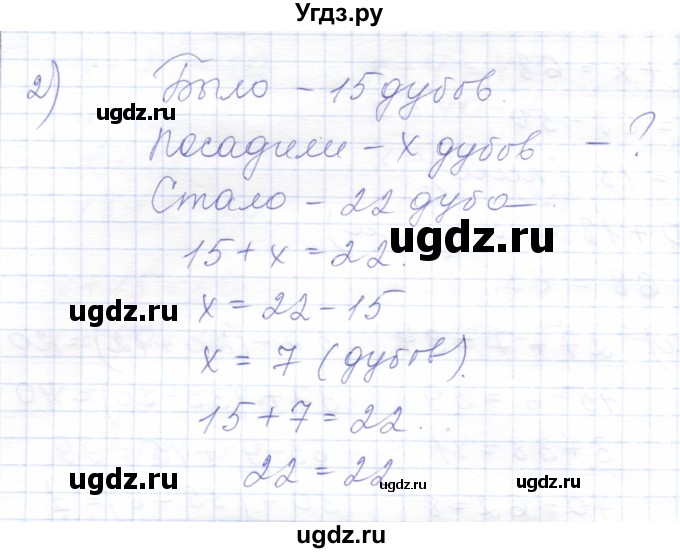 Угдз.ру
2) Было - 15 дубов.
ugdz.ru
посадили - х дубов - ?
Стало - 22 дуба
ugdz.ru
ugdz.ru
15 + х = 22.
х = 22 - 15
ugdz.ru
х = 7 (дубов).
15 + 7 = 22.
22 = 22
ugdz.ru
ugdz.ru
ugdz.ru
ugdz.ru